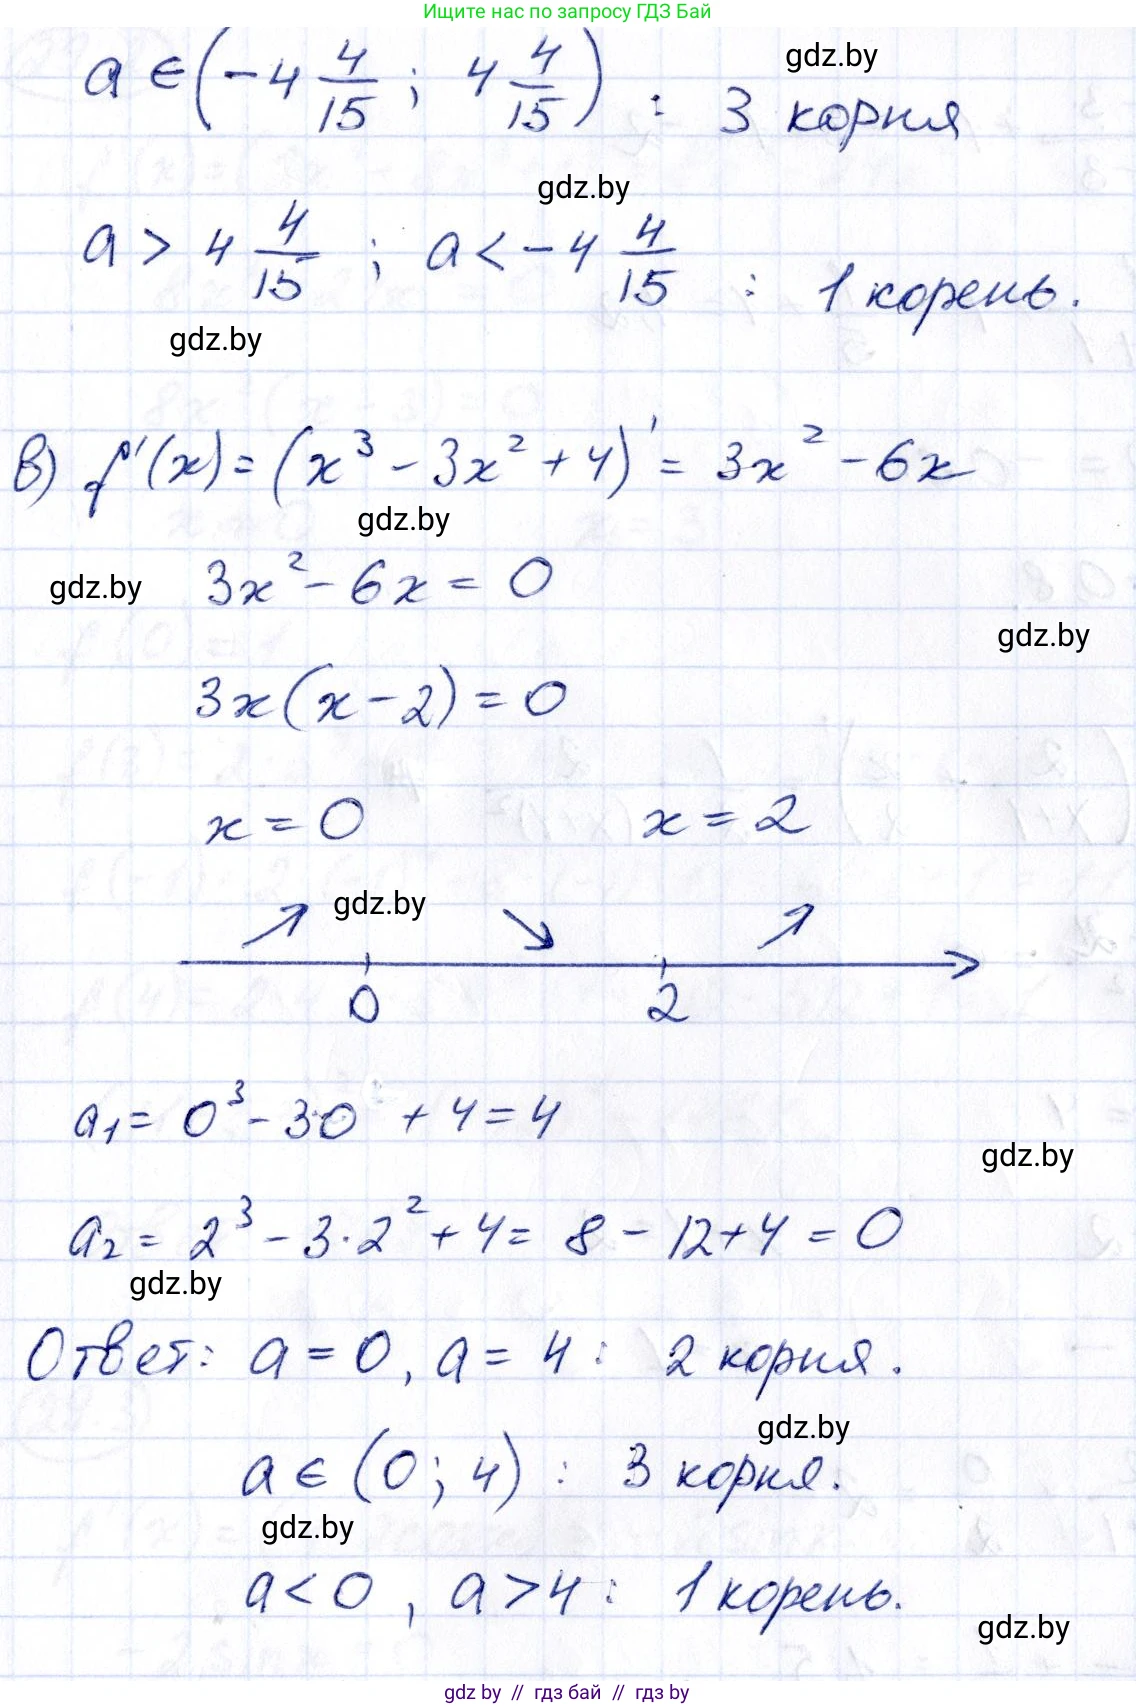 Ищите нас по запросу ГДЗ Бай
a ∈ (-4 4/15 ; 4 4/15) : 3 корня
gdz.by
gdz.by
a > 4 4/15 ; a < -4 4/15 : 1 корень.
gdz.by
в) f'(x) = (x³ - 3x² + 4)' = 3x² - 6x
gdz.by
3x² - 6x = 0
gdz.by
gdz.by
3x(x - 2) = 0
x = 0 x = 2
gdz.by
0 2
a₁ = 0³ - 3·0 + 4 = 4
gdz.by
a₂ = 2³ - 3·2² + 4 = 8 - 12 + 4 = 0
gdz.by
Ответ: a = 0, a = 4 : 2 корня.
gdz.by
a ∈ (0; 4) : 3 корня.
gdz.by
a < 0 , a > 4 : 1 корень.
gdz.by
gdz.by // гдз бай // gdz.by